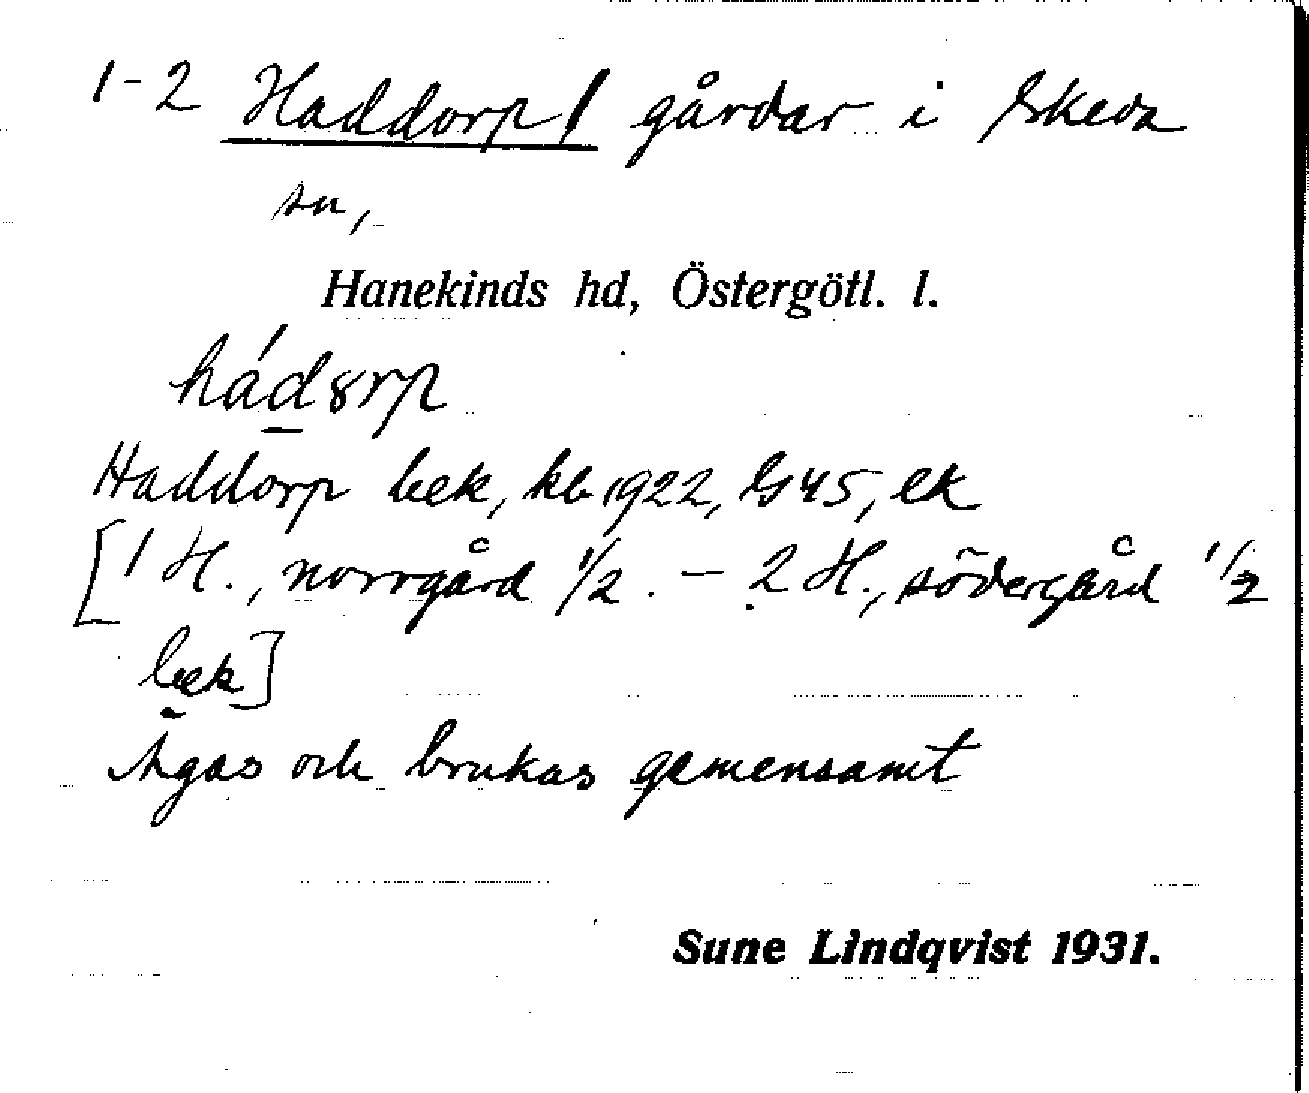 1-2 Haddorp/ gårdar i Skeda
sn,
Hanekinds hd, Östergötl. l.
hádȣrp
Haddorp bek, kb 1922, G45, ek
[1 H., norrgård 1/2. – 2 H., södergård 1/2
bek]
Ägas och brukas gemensamt
Sune Lindqvist 1931.